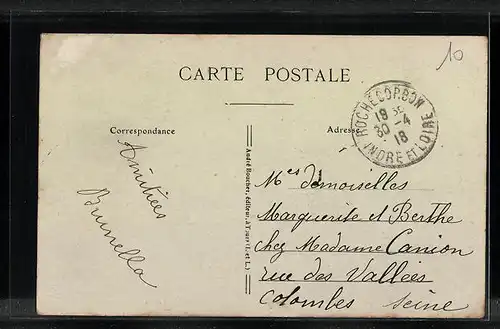 10
CARTE POSTALE
ROCHECORBON
18 35
30-4
18
INDRE ET LOIRE
Correspondance
Adresse
Amitiées
Brunella
André Boucher, éditeur, à Tours (I.-et-L.)
Mes demoiselles
Marguerite et Berthe
chez Madame Canion
rue des Vallées
Colombes Seine